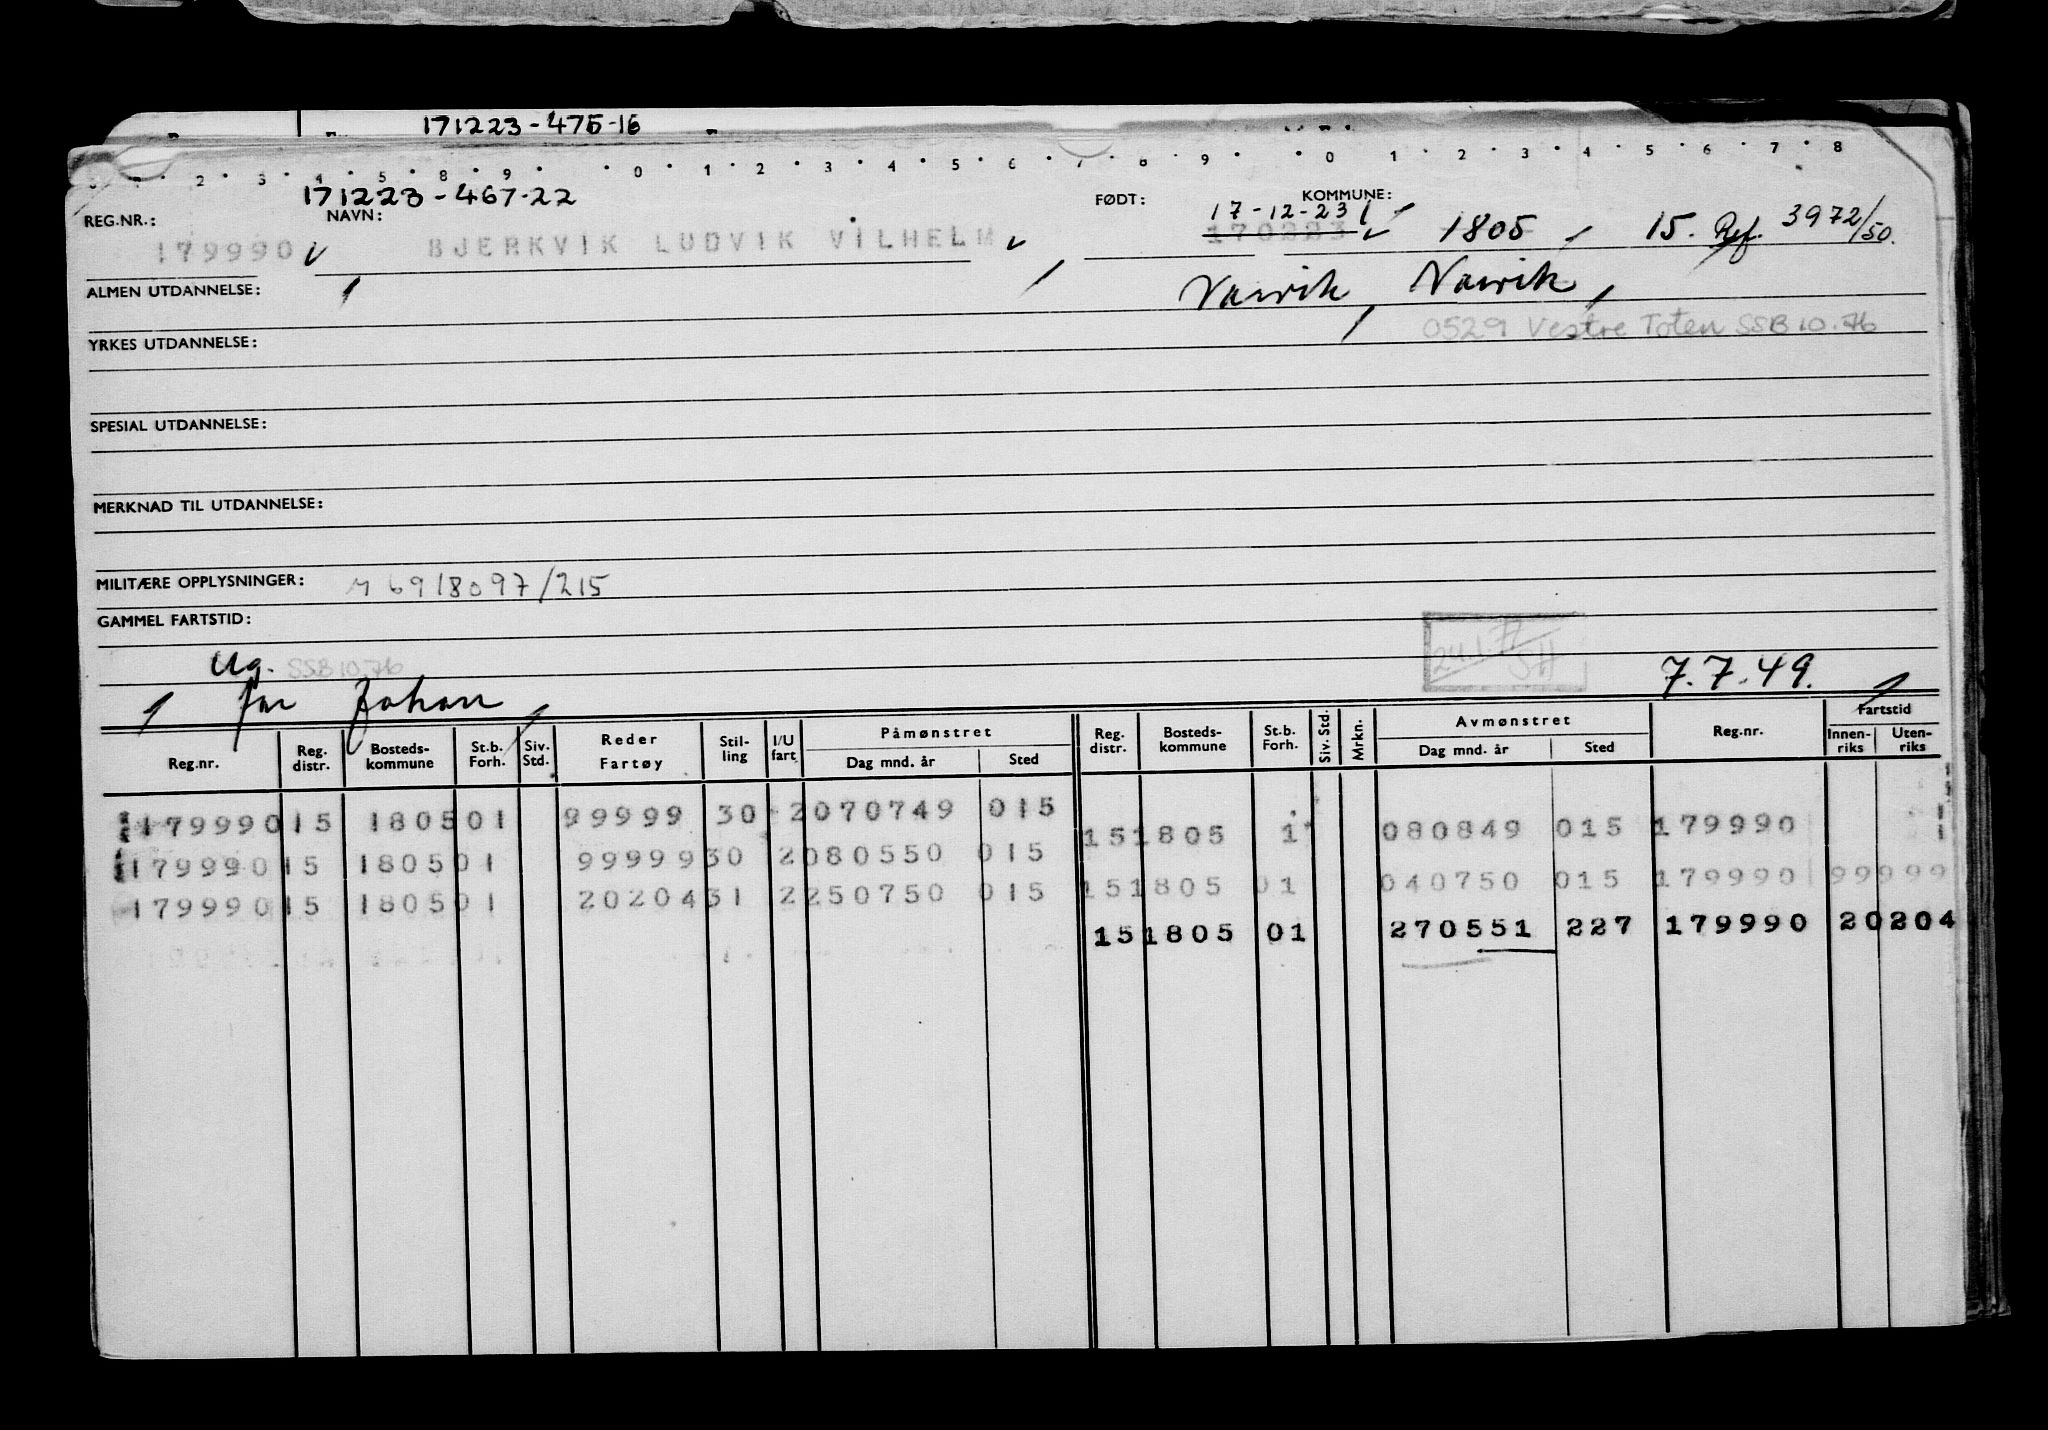 171223-475-16
2 3 4 5 8 9 0 1 2 3 4 5 6 7 8 9 0 1 2 3 4 5 6 7 8
171223-467-22
REG.NR.: NAVN: FØDT: KOMMUNE:
17-12-23
179990 BJERKVIK LUDVIK VILHELM 170223 1805 15. Ref. 3972/50.
ALMEN UTDANNELSE: Narvik, Narvik,
YRKES UTDANNELSE: 0529 Vestre Toten SSB 10.76
SPESIAL UTDANNELSE:
MERKNAD TIL UTDANNELSE:
MILITÆRE OPPLYSNINGER: M 6918097/215
GAMMEL FARTSTID:
Ug. SSB 10.76 7.7.49.
far Johan
Reg.nr. Reg. distr. Bosteds-kommune St.b. Forh. Siv. Std. Reder Fartøy Stil-ling I/U fart Påmønstret Dag mnd. år Sted Reg. distr. Bosteds-kommune St.b. Forh. Siv. Std. Mrkn. Avmønstret Dag mnd. år Sted Reg.nr. Fartstid Innen-riks Uten-riks
179990 15 1805 01 99999 30 2 070749 015
15 1805 1 080849 015 179990
179990 15 1805 01 99999 30 2 080550 015
15 1805 01 040750 015 179990 99999
179990 15 1805 01 20204 31 2 250750 015
15 1805 01 270551 227 179990 20204